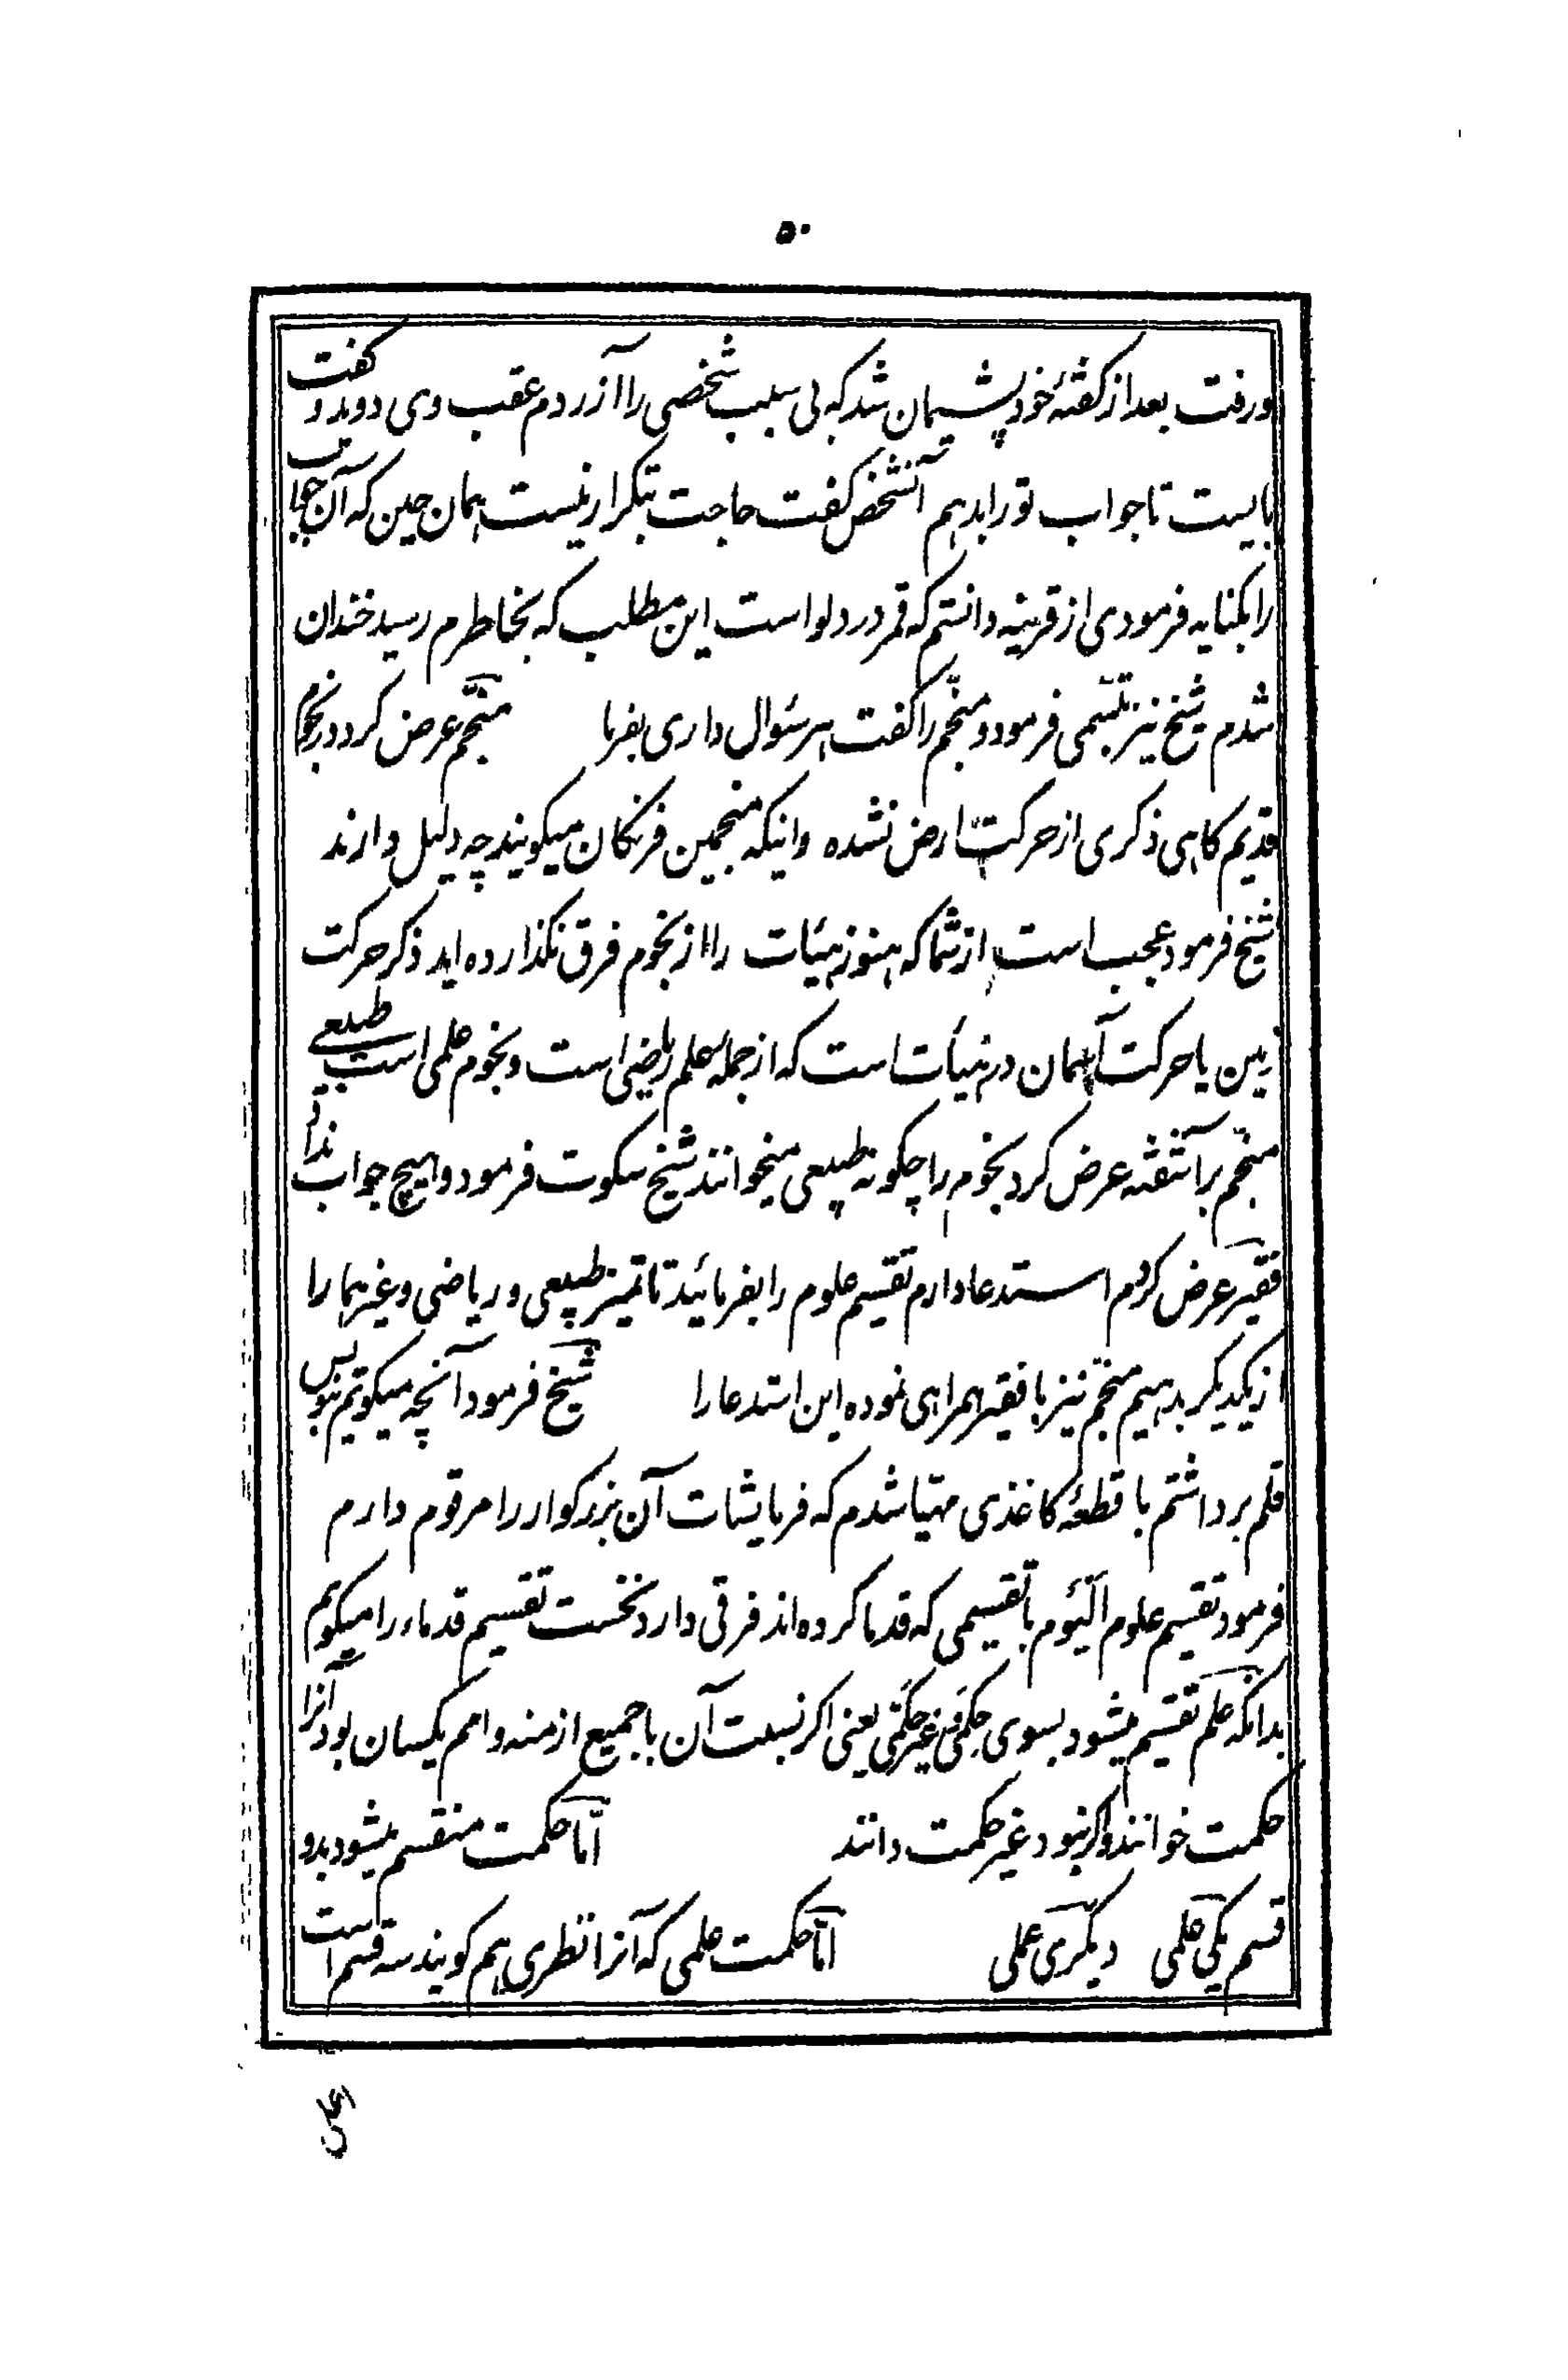 ۵۰
ورفت بعد از کفتهٔ خود پشیمان شد که بی سبب شخصی را آزردم عقب وی دوید و کفت
بایست تا جواب تو را بدهم آنشخص کفت حاجت بتکرار نیست همان حین که آن جواب
را بکنایه فرمودی از قرینه دانستم که قمر در دلو است این مطلب که بخاطرم رسید خندان
شدم شیخ نیز تبسّمی فرمود و منجّم را کفت هر سئوال داری بفرما منجّم عرض کرد در نجوم
قدیم کاهی ذکری از حرکت ارض نشده و اینکه منجمین فرنکان میکویند چه دلیل دارند
شیخ فرمود عجب است از شما که هنوز هیئات را از نجوم فرق نکذارده اید ذکر حرکت
زمین یا حرکت آسمان در هیئات است که از جملهٔ علم ریاضی است و نجوم علمی است طبیعی
منجّم بر آشفته عرض کرد نجوم را چکونه طبیعی میخوانند شیخ سکوت فرمود و هیچ جواب نداد
فقیر عرض کردم استدعا دارم تقسیم علوم را بفرمائید تا تمیز طبیعی و ریاضی و غیرهما را
از یکدیکر بدهیم منجّم نیز با فقیر همراهی نموده این استدعا را شیخ فرمود آنچه میکویم بنویس
قلم برداشتم با قطعهٔ کاغذی مهیّا شدم که فرمایشات آن بزرکوار را مرقوم دارم
فرمود تقسیم علوم الیوم با تقسیمی که قدما کرده اند فرقی دارد نخست تقسیم قدماء را میکویم
بدانکه علم تقسیم میشود بسوی حکمی و غیر حکمی یعنی اکر نسبت آن با جمیع ازمنه و امم یکسان بود آنرا
حکمت خوانند و اکر نبود غیر حکمت دانند امّا حکمت منقسم میشود بدو
قسم یکی علمی دیکری عملی امّا حکمت علمی که آنرا نظری هم کویند سه قسم است